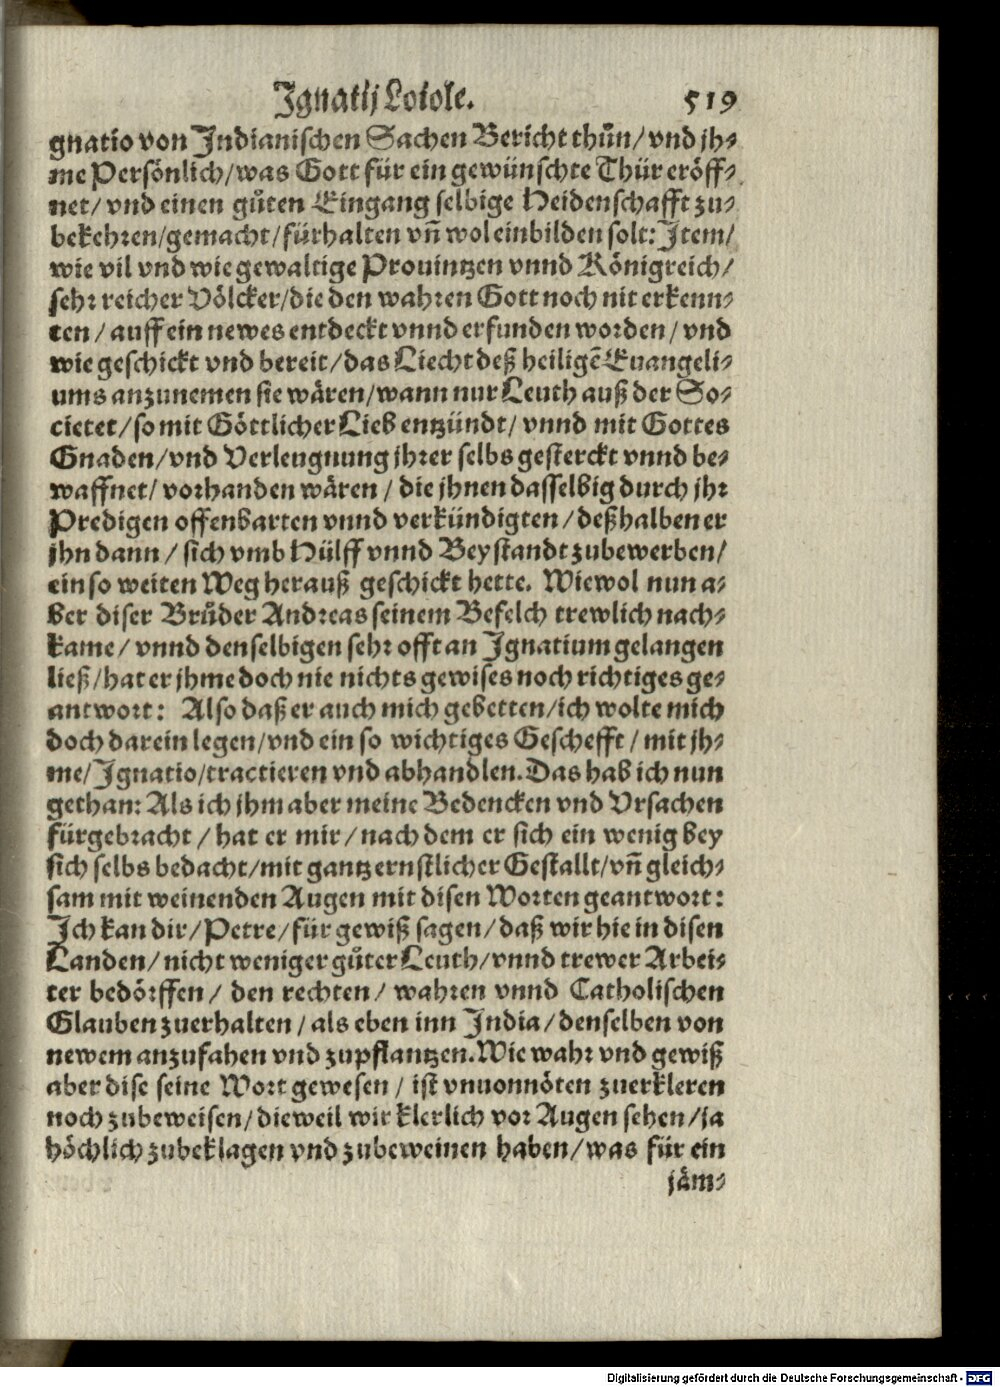 Ignatij Loiole. 519
gnatio von Indianischen Sachen Bericht thůn/ vnd jh⸗
me Persönlich/ was Gott für ein gewünschte Thür eröff⸗
net/ vnd einen gůten Eingang selbige Heidenschafft zu⸗
bekehren/ gemacht/ fürhalten vñ wol einbilden solt: Item/
wie vil vnd wie gewaltige Prouintzen vnnd Königreich/
sehr reicher Völcker/ die den wahren Gott noch nit erkenn⸗
ten/ auff ein newes entdeckt vnnd erfunden worden/ vnd
wie geschickt vnd bereit/ das Liecht deß heiligẽ Euangeli⸗
ums anzunemen sie wären/ wann nur Leuth auß der So⸗
cietet/ so mit Göttlicher Lieb entzündt/ vnnd mit Gottes
Gnaden/ vnd Verleugnung jhrer selbs gesterckt vnnd be⸗
waffnet/ vorhanden wären/ die jhnen dasselbig durch jhr
Predigen offenbarten vnnd verkündigten/ deßhalben er
jhn dann/ sich vmb Hülff vnnd Beystandt zubewerben/
ein so weiten Weg herauß geschickt hette. Wiewol nun a⸗
ber diser Brůder Andreas seinem Befelch trewlich nach⸗
kame/ vnnd denselbigen sehr offt an Ignatium gelangen
ließ/ hat er jhme doch nie nichts gewises noch richtiges ge⸗
antwort: Also daß er auch mich gebetten/ ich wolte mich
doch darein legen/ vnd ein so wichtiges Geschefft/ mit jh⸗
me/ Ignatio/ tractieren vnd abhandlen. Das hab ich nun
gethan: Als ich jhm aber meine Bedencken vnd Vrsachen
fürgebracht/ hat er mir/ nach dem er sich ein wenig bey
sich selbs bedacht/ mit gantz ernstlicher Gestallt/ vñ gleich⸗
sam mit weinenden Augen mit disen Worten geantwort:
Ich kan dir/ Petre/ für gewiß sagen/ daß wir hie in disen
Landen/ nicht weniger gůter Leuth/ vnnd trewer Arbei⸗
ter bedörffen/ den rechten/ wahren vnnd Catholischen
Glauben zuerhalten/ als eben inn India/ denselben von
newem anzufahen vnd zupflantzen. Wie wahr vnd gewiß
aber dise seine Wort gewesen/ ist vnuonnöten zuerkleren
noch zubeweisen/ dieweil wir klerlich vor Augen sehen/ ja
höchlich zubeklagen vnd zubeweinen haben/ was für ein
jäm⸗
Digitalisierung gefördert durch die Deutsche Forschungsgemeinschaft - DFG